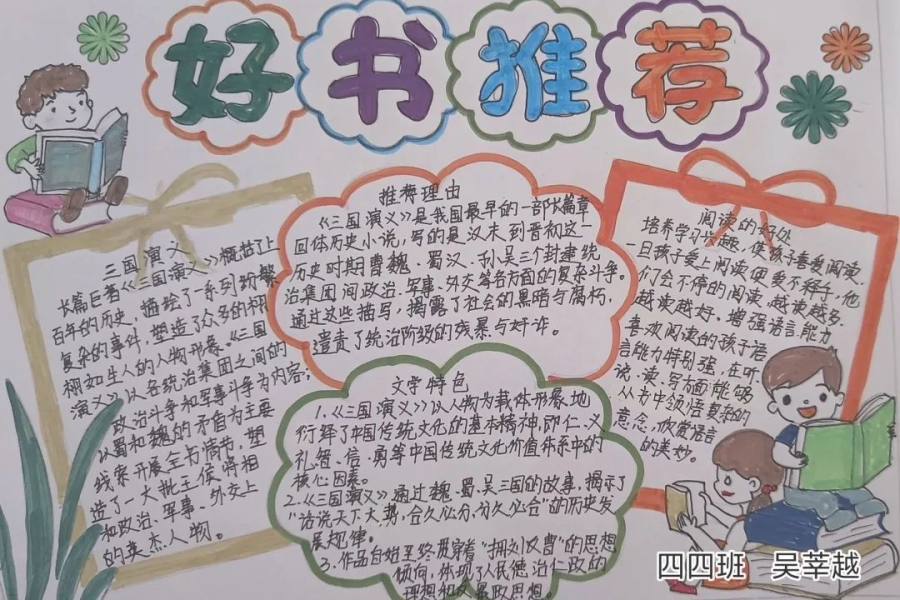 好书推荐
三国演义
长篇巨著《三国演义》概括了上
百年的历史，描绘了一系列纷繁
复杂的事件，塑造了众多的栩
栩如生人的人物形象。《三国
演义》以各统治集团之间的
政治斗争和军事斗争为内容；
以蜀和魏的矛盾为主要
线索开展全书情节，塑
造了一大批王侯、将相
和政治、军事、外交上
的英杰人物。
推荐理由
《三国演义》是我国最早的一部长篇章
回体历史小说，写的是汉末到晋初这一
历史时期曹魏、蜀汉、孙吴三个封建统
治集团间政治、军事、外交等各方面的复杂斗争。
通过这些描写，揭露了社会的黑暗与腐朽，
遣责了统治阶级的残暴与奸诈。
文学特色
1.《三国演义》以人物为载体形象地
衍绎了中国传统文化的基本精神，即仁、义
礼智、信、勇等中国传统文化价值体系中的
核心因素。
2.《三国演义》通过魏、蜀、吴三国的故事，揭示了
“话说天下大势，合久必分，分久必合”的历史发
展规律。
3.作品自始至终贯穿着“拥刘反曹”的思想
倾向，体现了人民德治仁政的
理想和反暴政思想。
阅读的好处
培养学习兴趣，使孩子喜爱阅读，
一旦孩子爱上阅读便爱不释手，他
们会不停的阅读，越读越多，
越读越好。增强语言能力
喜欢阅读的孩子语
言能力特别强，在听、
说、读、写方面能够
从书中领悟复杂的
意念，欣赏语言
的美妙。
四四班 吴莘越